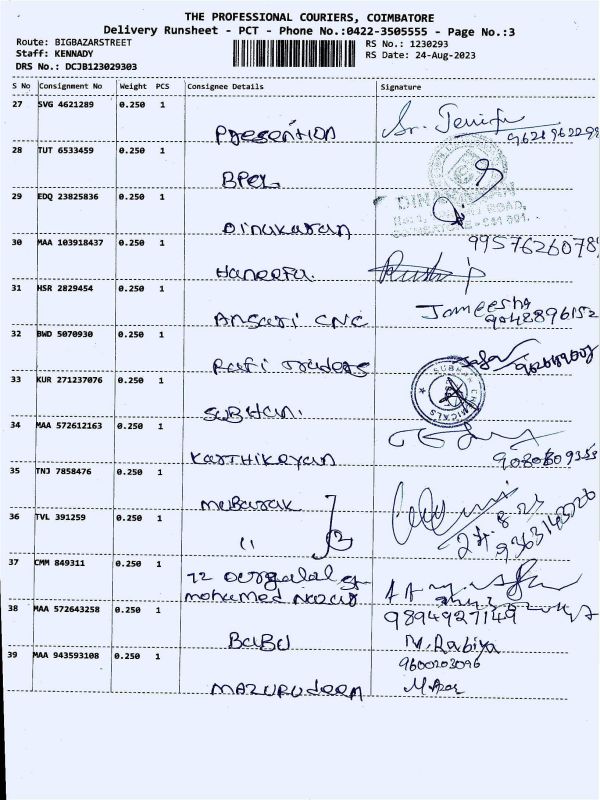 THE PROFESSIONAL COURIERS, COIMBATORE
Delivery Runsheet - PCT - Phone No.:0422-3505555 - Page No.:3
Route: BIGBAZARSTREET RS No.: 1230293
Staff: KENNADY RS Date: 24-Aug-2023
DRS No.: DCJB123029303 RS Signature
S No Consignment No Weight PCS Consignee Details Signature
27 SVG 4621289 0.250 1
Presention
28 TUT 6533459 0.250 1
BPCL
29 EDQ 23825836 0.250 1
Dinakaran
30 MAA 103918437 0.250 1
Haneefa.
31 HSR 2829454 0.250 1 Jameesha
Ansari CNC 9042896152
32 BWD 5070930 0.250 1
Rafi Traders
33 KUR 271237076 0.250 1
SUBHAN.
34 MAA 572612163 0.250 1
Karthikeyan
35 TNJ 7858476 0.250 1
Mubarak
36 TVL 391259 0.250 1 24.8.23
11
37 CMM 849311 0.250 1
72
mohamed
38 MAA 572643258 0.250 1 9894927149
BABU M. Rabiya
39 MAA 943593108 0.250 1 9600203096
Mazurudeen